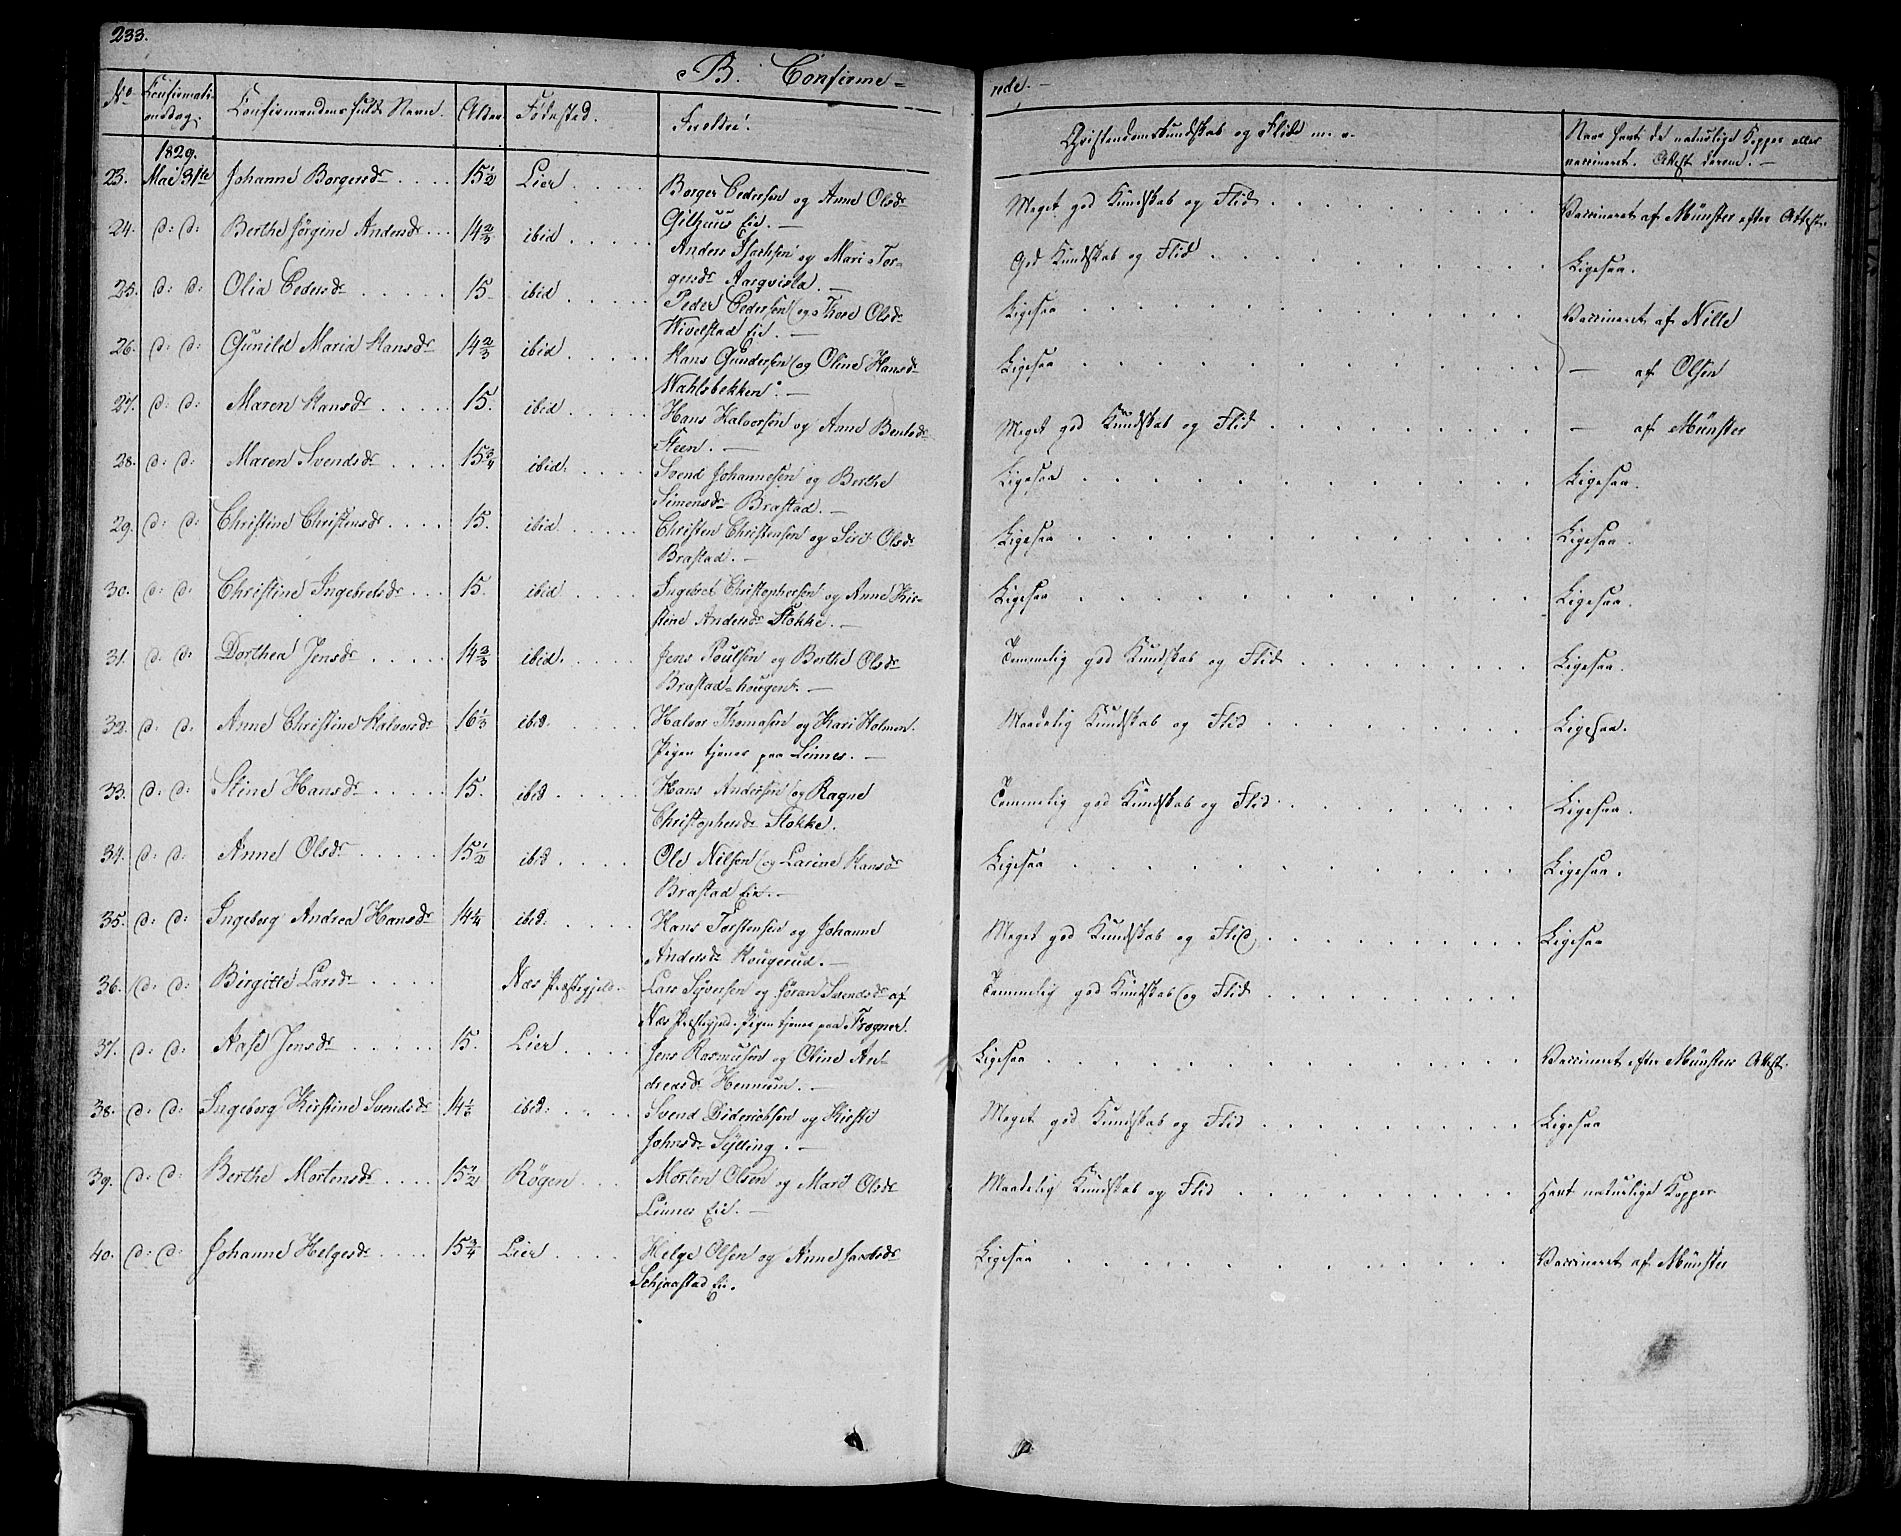 233.
B. Confirme= rede.
No Confirmationsdag. Confirmandens fulde Navn. Alder Fødested. Foreldre. Christendomskundskab og Flid m. v. Naar havt de naturlige Kopper eller vaccineret. Attest derom.
1829.
23. Mai 31te Johanne Borgersdr 15 1/2 Lier Borger Pedersen og Anne Olsdr Meget god Kundskab og Flid Vaccineret af Münster efter Attest.
Eie.
24. d: d: Berthe Jørgine Andersdr 14 2/3 ibid Anders og Mari Tor- God Kundskab og Flid Ligesaa.
gersdr
25. d: d: Olia Pedersdr 15. ibid Peder Pedersen og Thore Olsdr Ligesaa Vaccineret af Nille
Wivelstad Eie.
26. d: d: Gunild Maria Hansdr 14 2/3 ibid Hans Gundersen og Oline Hansdr Ligesaa — af Olsen
Wahlsbekken.
27. d: d: Maren Hansdr 15. ibid Hans Halvorsen og Anne Bentsdr Meget god Kundskab og Flid — af Münster
Steen.
28. d: d: Maren Svendsdr 15 3/4 ibid. Svend Johannesen og Berthe Ligesaa Ligesaa.
Simensdr Brastad.
29. d: d: Christine Christensdr 15. ibid. Christen Christensen og Siri Olsdr Ligesaa Ligesaa.
Brastad.
30. d: d: Christine Ingebretsdr 15. ibid Ingebret Christophersen og Anne Kir- Ligesaa Ligesaa.
stine Andersdr Stokke.
31. d: d: Dorthea Jensdr 14 2/3 ibid. Jens Poulsen og Berthe Olsdr Temmelig god Kundskab og Flid Ligesaa.
Brastad-hougen.
32. d: d: Anne Christine Halvorsdr 16 1/3 ibid. Halvor Thomasen og Kari Holmen. Maadelig Kundskab og Flid Ligesaa.
Pigen tjener paa Linnes.
33. d: d: Stine Hansdr 15. ibid Hans Andersen og Ragne Temmelig god Kundskab og Flid Ligesaa.
Christophersdr Stokke.
34. d: d: Anne Olsdr 15 1/2 ibid Ole Nilsen og Larine Hansdr Ligesaa Ligesaa.
Brastad Eie.
35. d: d: Ingeborg Andrea Hansdr 14 1/4 ibid. Hans Torstensen og Johanne Meget god Kundskab og Flid Ligesaa
Andersdr Hougerud.
36. d: d: Birgitte Larsdr Næs Præstegjeld. Lars Syversen og Jøran Svendsdr af Temmelig god Kundskab og Flid
Næs Præstegjeld. Pigen tjener paa Frogner.
37. d: d: Aase Jensdr 15. Lier Jens Rasmusen og Oline An- Ligesaa Vaccineret efter Münsters Attest.
dreasdr Hennum.
38. d: d: Ingeborg Kirstine Svendsdr 14 1/3 ibid. Svend Diderichsen og Kirsti Meget god Kundskab og Flid Ligesaa
Johnsdr Sylling.
39. d: d: Berthe Mortensdr 15 1/2 Røgen Morten Olsen og Mari Olsdr Maadelig Kundskab og Flid Havt naturlige Kopper
Linnes Eie.
40. d: d: Johanne Helgesdr 15 3/4 Lier Helge Olsen og Anne Jacobsdr Ligesaa Vaccineret af Münster
Schjaastad Eie.